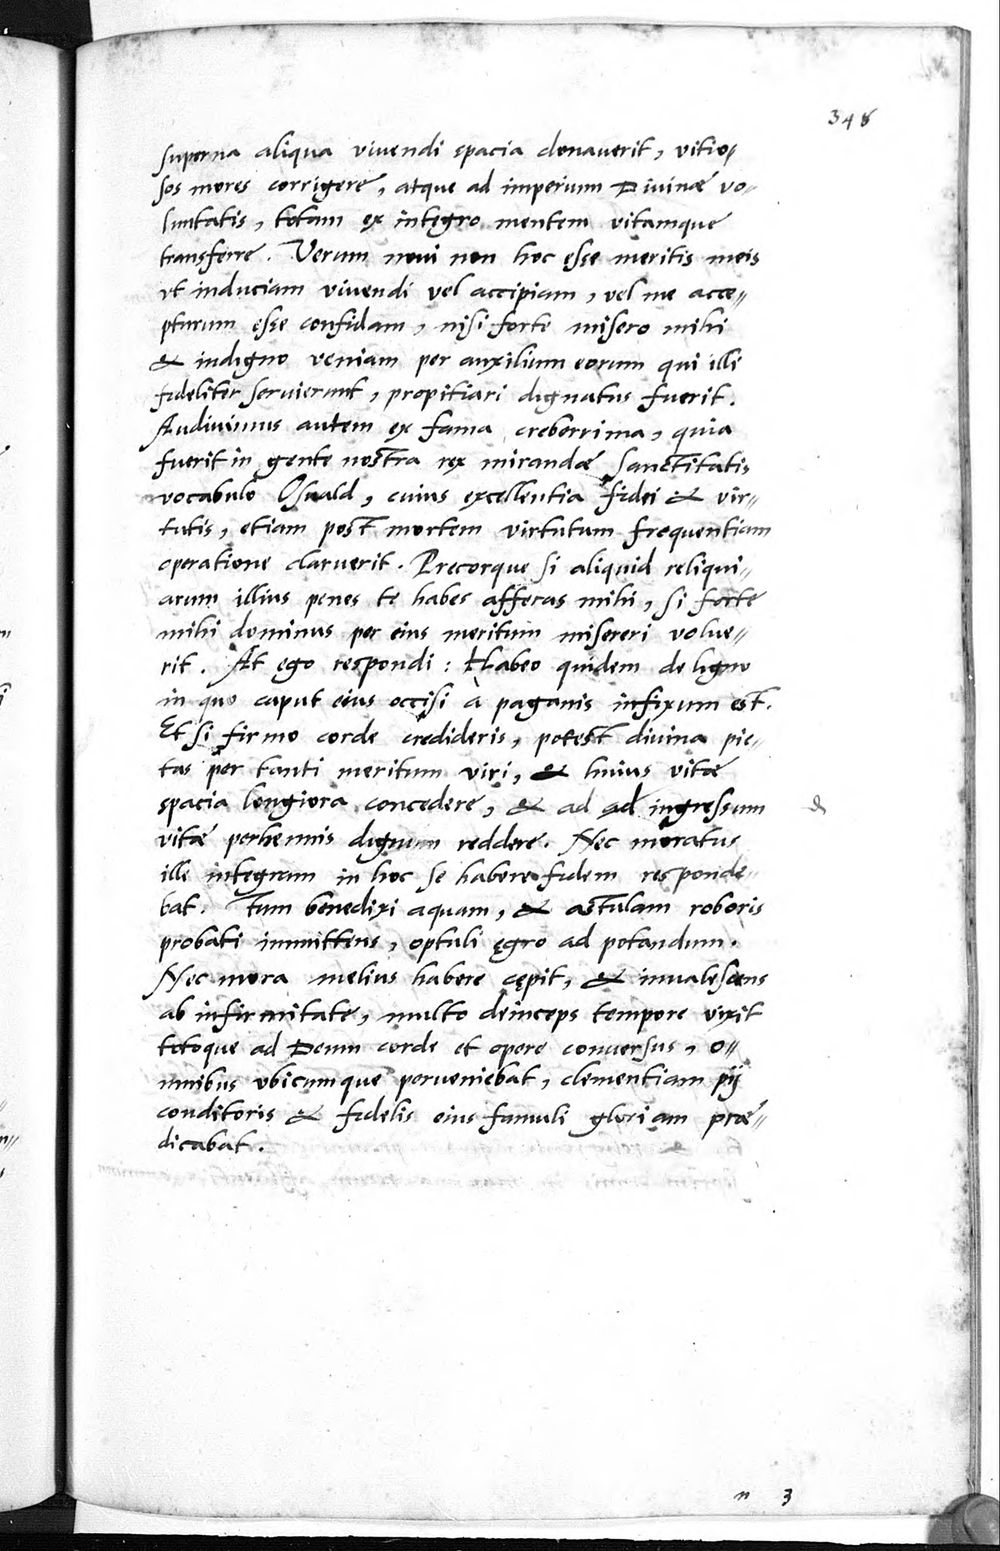 348
superna aliqua vivendi spacia donauerit, vitio-
sos mores corrigere, atque ad imperium Diuinæ vo-
luntatis, totam ex integro mentem vitamque
transferre. Verum noui non hoc esse meritis meis
vt induciam vivendi vel accipiam, vel me acce-
pturum esse confidam, nisi forte misero mihi
& indigno veniam per auxilium eorum qui illi
fideliter seruierunt, propitiari dignatus fuerit.
Audiuimus autem ex fama creberrima, quia
fuerit in gente nostra rex mirandæ sanctitatis
vocabulo Osuald, cuius excellentia fidei & vir-
tutis, etiam post mortem virtutum frequentiam
operatione claruerit. Precorque si aliquid reliqui-
arum illius penes te habes afferas mihi, si forte
mihi dominus per eius meritum misereri volue-
rit. At ego respondi: Habeo quidem de ligno
in quo caput eius occisi a paganis infixum est.
Et si firmo corde credideris, potest diuina pie-
tas per tanti meritum viri, & huius vitæ
spacia longiora concedere, & ad ad ingressum
vitæ perhennis dignum reddere. Nec moratus
ille integram in hoc se habere fidem responde-
bat. Tum benedixi aquam, & astulam roboris
probati inmittens, optuli ęgro ad potandum.
Nec mora melius habere cępit, & inualescens
ab infirmitate, multo deinceps tempore vixit
totoque ad Deum corde et opere conuersus, o-
mnibus vbicumque perueniebat, clementiam pij
conditoris & fidelis eius famuli gloriam præ-
dicabat.
n 3